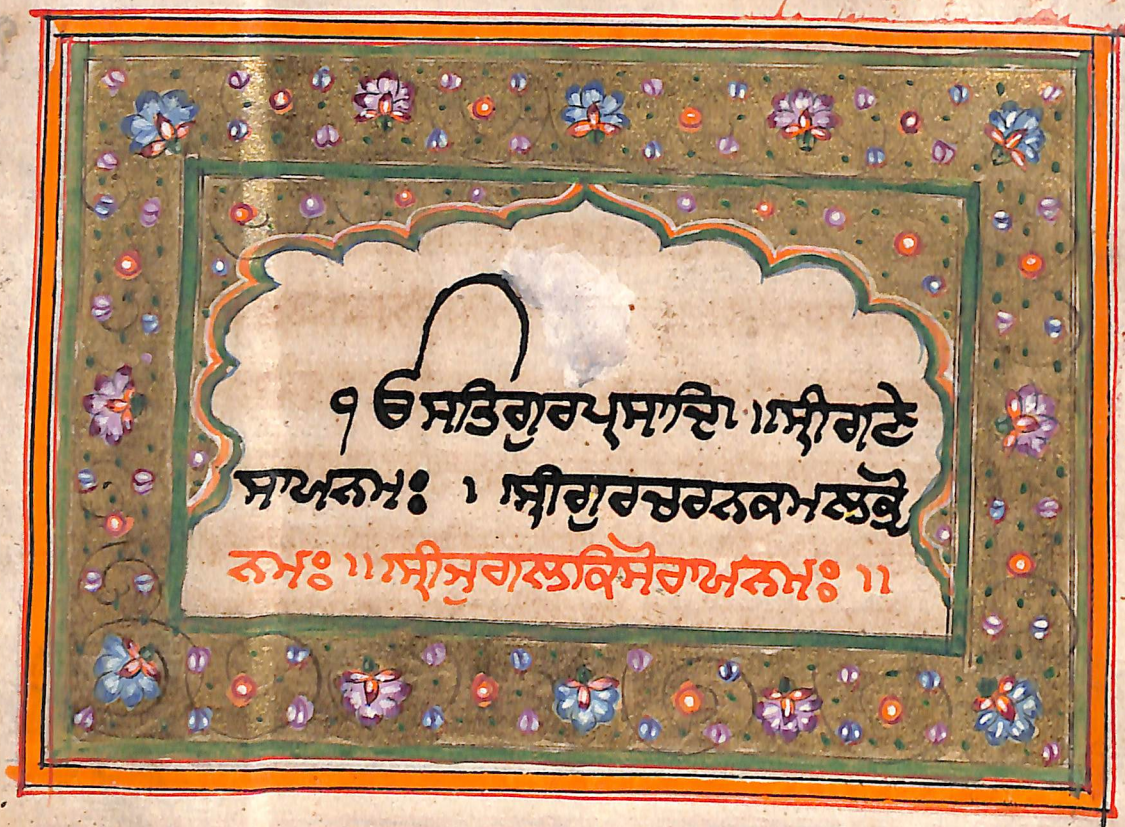 ੴ ਸਤਿਗੁਰਪ੍ਰਸਾਦਿ ॥ਸ੍ਰੀਗਣੇ
ਸਾਯਨਮਃ । ਸ੍ਰੀਗੁਰਚਰਨਕਮਲਕੋ
ਨਮਃ ॥ਸ੍ਰੀਜੁਗਲਕਿਸੋਰਾਯਨਮਃ ॥